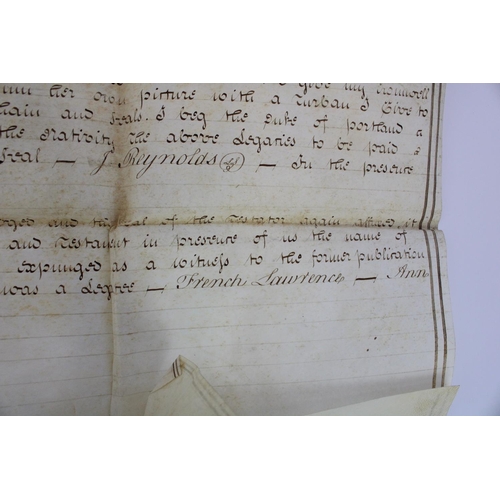 give my Cromwell
her own picture with a Turban I Give to
and Seals. I beg the Duke of portland a
the Nativity the above Legaties to be paid a
Seal — J Reynolds LS — In the presence
and the Seal of the Testator again affixed it
and Testament in presence of us the name of
expunged as a witness to the former publication
was a Legtee — French Lawrence — Ann